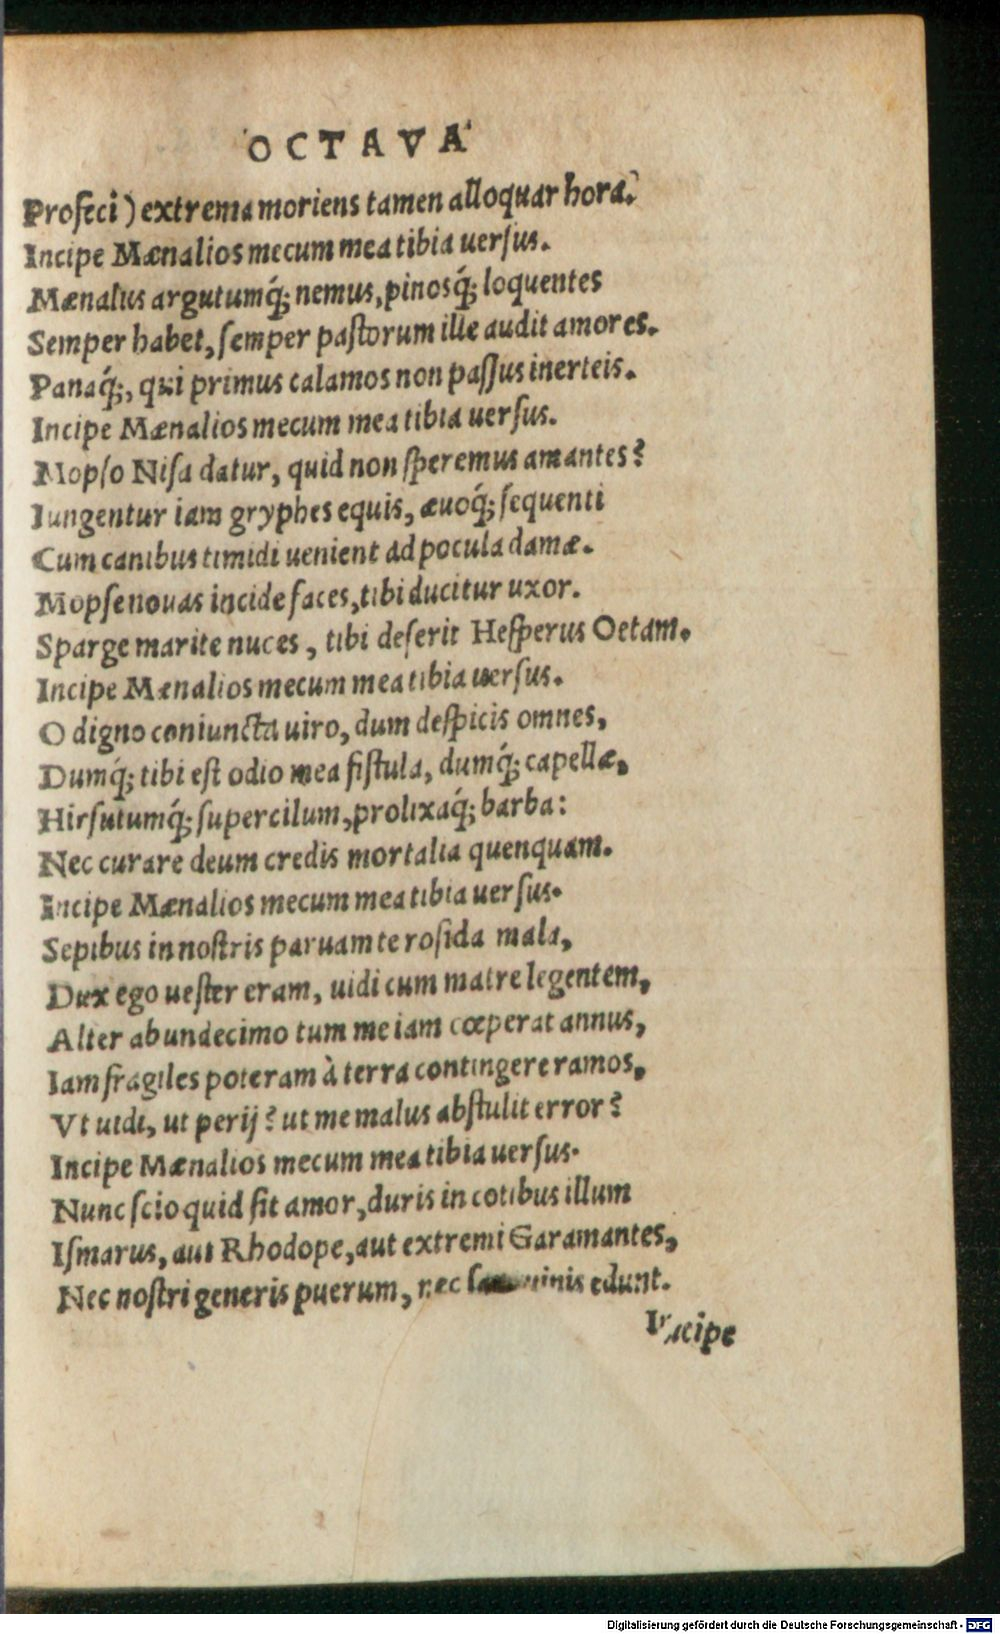 OCTAVA
Profeci) extrema moriens tamen alloquar hora?
Incipe Mænalios mecum mea tibia uersus.
Mænalus argutumq́; nemus, pinosq́; loquentes
Semper habet, semper pastorum ille audit amores.
Panaq́;, qui primus calamos non passus inerteis.
Incipe Mænalios mecum mea tibia uersus.
Mopso Nisa datur, quid non speremus amantes?
Iungentur iam gryphes equis, æuoq́; sequenti
Cum canibus timidi uenient ad pocula damæ.
Mopse nouas incide faces, tibi ducitur uxor.
Sparge marite nuces, tibi deserit Hesperus Oetam.
Incipe Mænalios mecum mea tibia uersus.
O digno coniuncta uiro, dum despicis omnes,
Dumq́; tibi est odio mea fistula, dumq́; capellæ,
Hirsutumq́; supercilum, prolixaq́; barba:
Nec curare deum credis mortalia quenquam.
Incipe Mænalios mecum mea tibia uersus.
Sepibus in nostris paruam te rosida mala,
Dux ego uester eram, uidi cum matre legentem,
Alter ab undecimo tum me iam cœperat annus,
Iam fragiles poteram à terra contingere ramos,
Vt uidi, ut perij? ut me malus abstulit error?
Incipe Mænalios mecum mea tibia uersus.
Nunc scio quid sit amor, duris in cotibus illum
Ismarus, aut Rhodope, aut extremi Garamantes,
Nec nostri generis puerum, nec edunt.
Incipe
Digitalisierung gefördert durch die Deutsche Forschungsgemeinschaft - DFG